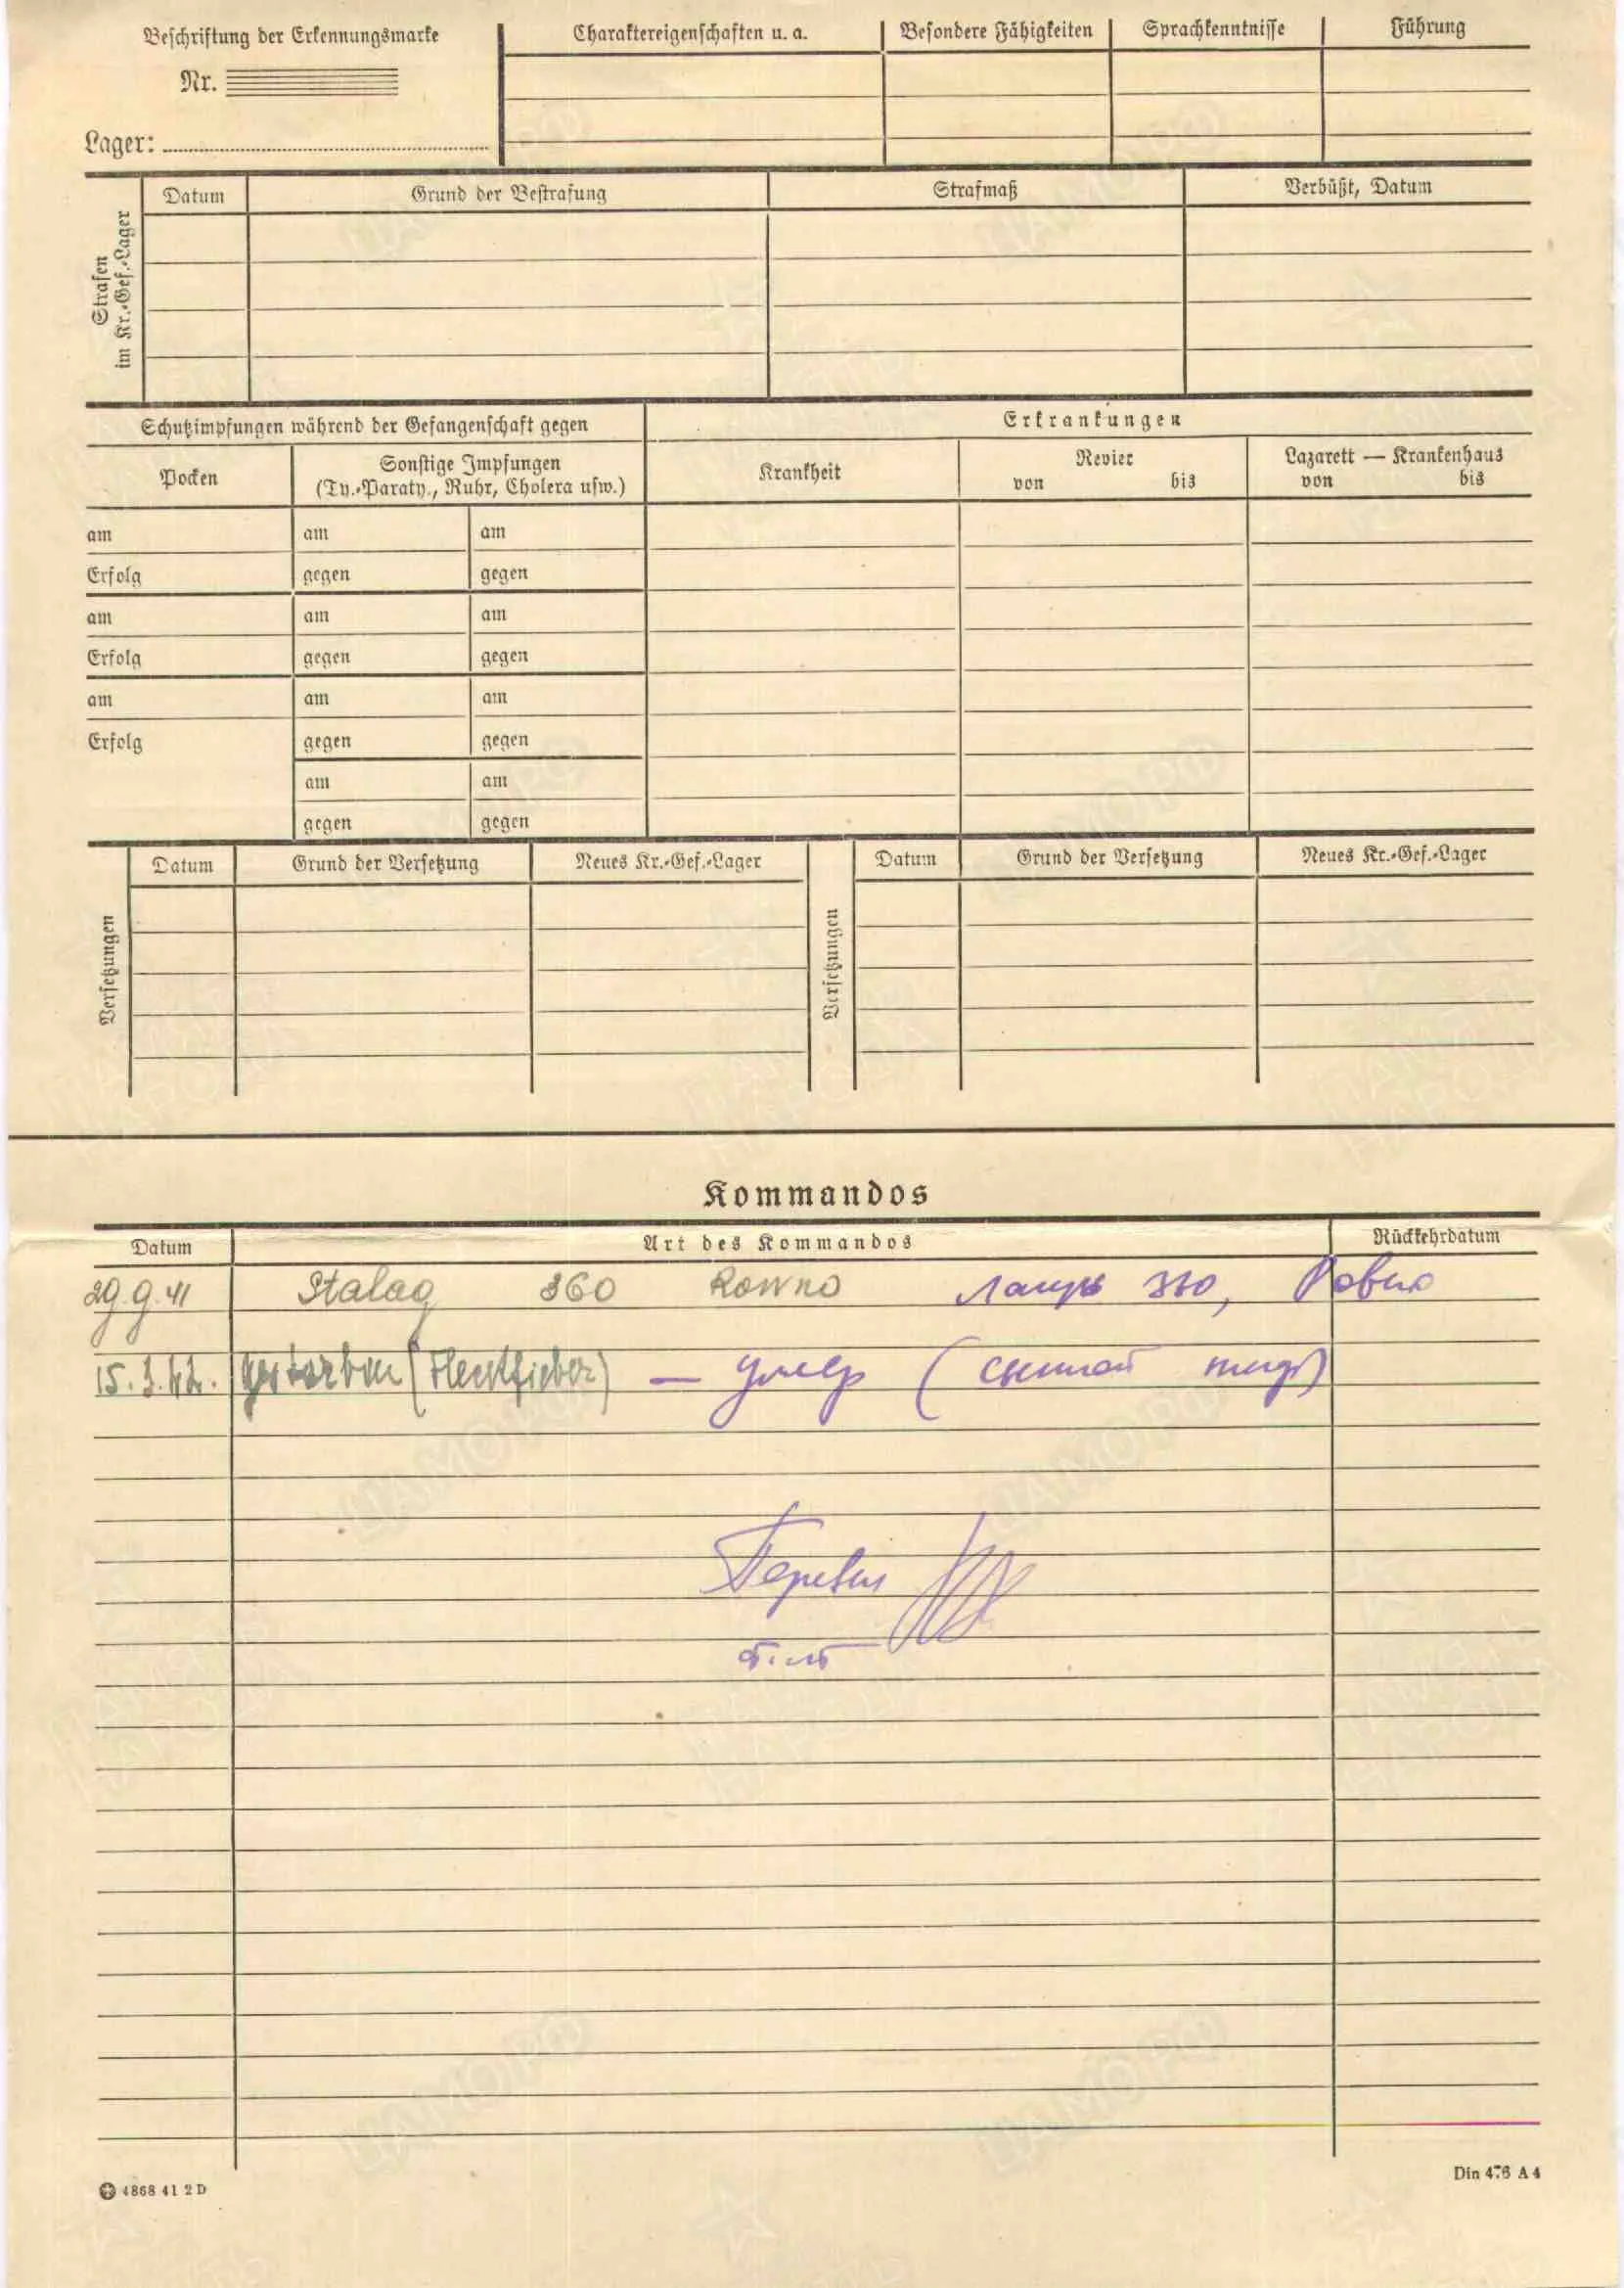 Beschriftung der Erkennungsmarke
Nr.
Lager:
Charaktereigenschaften u. a. Besondere Fähigkeiten Sprachkenntnisse Führung
Strafen im Kr.-Gef.-Lager
Datum Grund der Bestrafung Strafmaß Verbüßt, Datum
Schutzimpfungen während der Gefangenschaft gegen
Erkrankungen
Pocken
Sonstige Impfungen
(Ty.-Paraty., Ruhr, Cholera usw.)
Krankheit
Revier
von bis
Lazarett — Krankenhaus
von bis
am am am
Erfolg gegen gegen
am am am
Erfolg gegen gegen
am am am
Erfolg gegen gegen
am am
gegen gegen
Versetzungen
Datum Grund der Versetzung Neues Kr.-Gef.-Lager
Versetzungen
Datum Grund der Versetzung Neues Kr.-Gef.-Lager
Kommandos
Datum Art des Kommandos Rückkehrdatum
29.9.41 Stalag 360 Rowno Лагерь 360, Ровно
15.3.42. gestorben (Fleckfieber) — умер (сыпной тиф)
Перевел
4868 41 2 D
Din 476 A 4